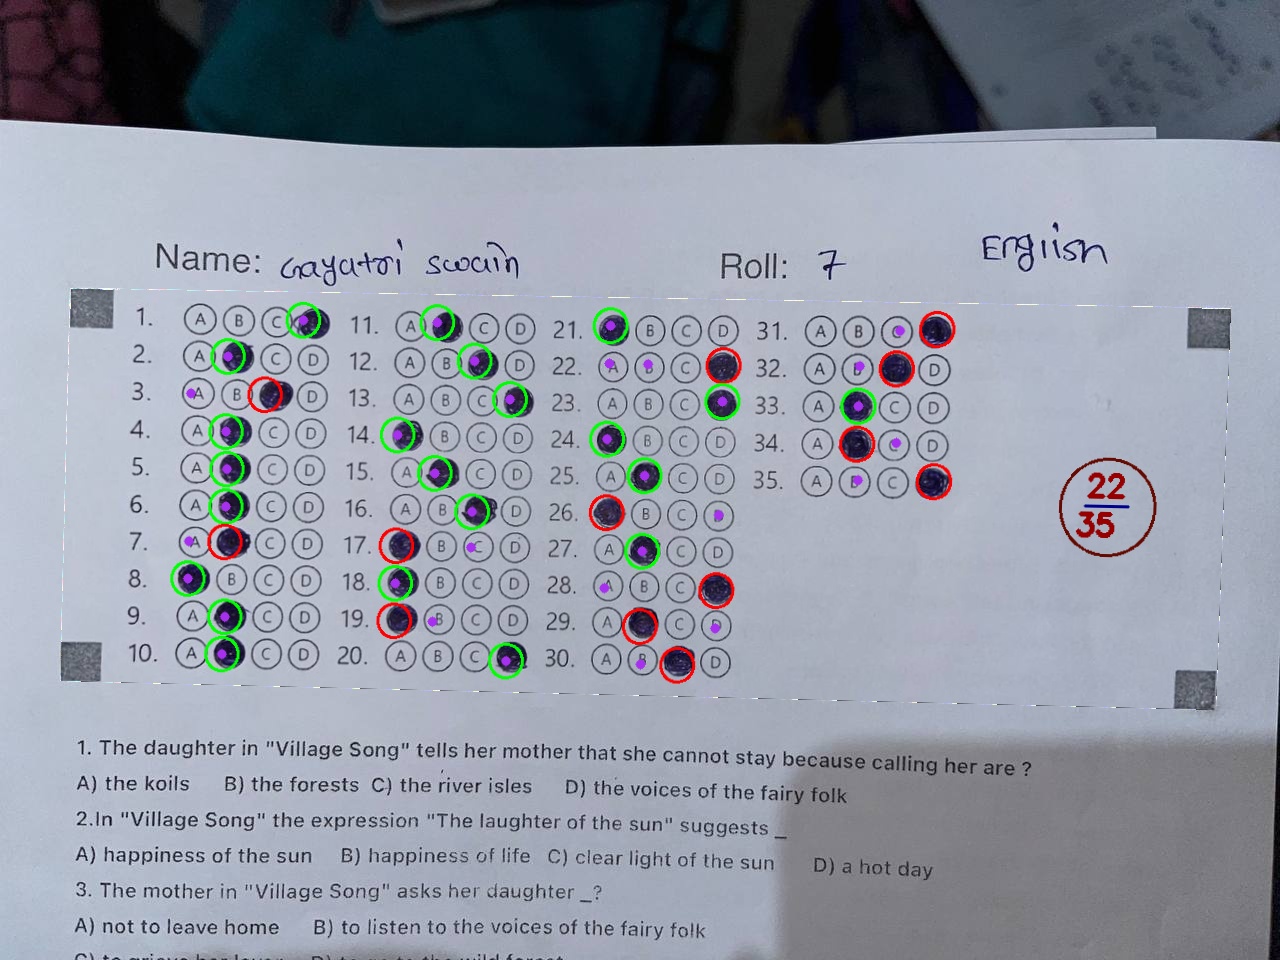 Name: Gayatri swain Roll: 7 English
1. A B C 11. A C D 21. B C D 31. A B C
2. A C D 12. A B D 22. A B C 32. A B D
3. A B D 13. A B C 23. A B C 33. A C D
4. A C D 14. B C D 24. B C D 34. A C D
5. A C D 15. A C D 25. A C D 35. A B C
6. A C D 16. A B D 26. B C D
7. A C D 17. B C D 27. A C D
8. B C D 18. B C D 28. A B C
9. A C D 19. B C D 29. A C D
10. A C D 20. A B C 30. A B D
22
35
1. The daughter in "Village Song" tells her mother that she cannot stay because calling her are ?
A) the koils B) the forests C) the river isles D) the voices of the fairy folk
2.In "Village Song" the expression "The laughter of the sun" suggests _
A) happiness of the sun B) happiness of life C) clear light of the sun D) a hot day
3. The mother in "Village Song" asks her daughter _?
A) not to leave home B) to listen to the voices of the fairy folk